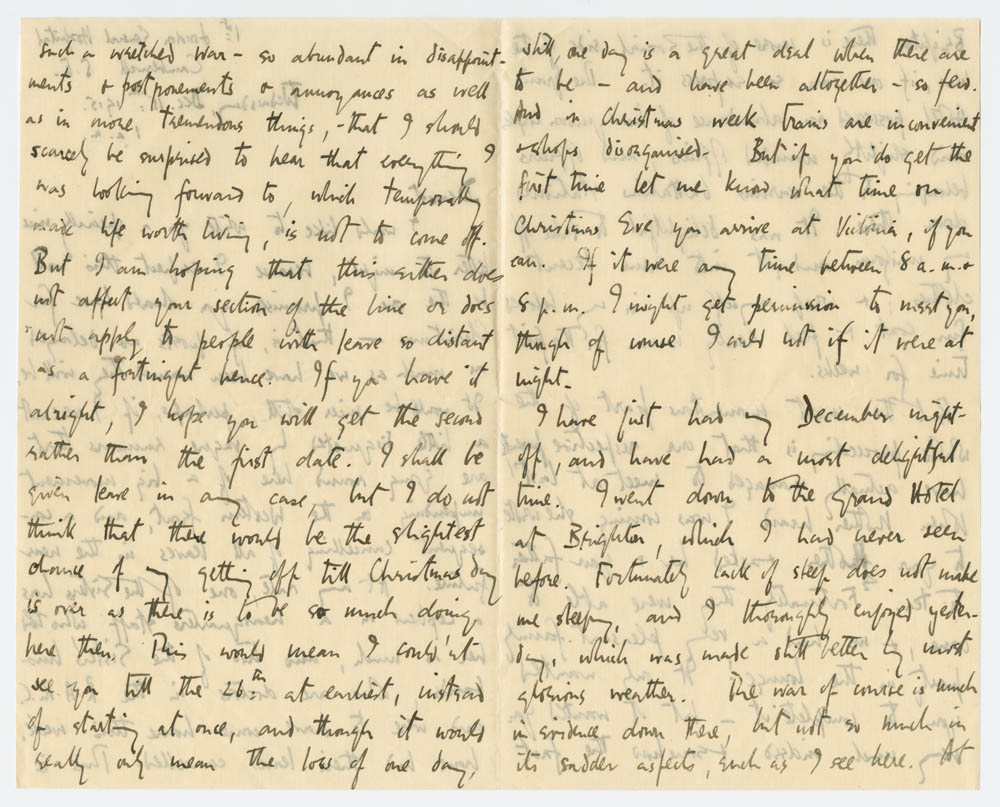 such a wretched war – so abundant in disappoint-
ments & postponements & annoyances as well
as in more tremendous things, – that I should
scarcely be surprised to hear that everything I
was looking forward to, which temporarily
made life worth living, is not to come off.
But I am hoping that this either does
not affect your section of the line or does
not apply to people with leave so distant
as a fortnight hence. If you have it
alright, I hope you will get the second
rather than the first date. I shall be
given leave in any case, but I do not
think that there would be the slightest
chance of my getting off till Christmas day
is over as there is to be so much doing
here then. This would mean I could'nt
see you till the 26th at earliest, instead
of starting at once, and though it would
really only mean the loss of one day,
still, one day is a great deal when there are
to be – and have been altogether – so few.
And in Christmas week trains are inconvenient
& shops disorganised – But if you do get the
first time let me know what time on
Christmas Eve you arrive at Victoria, if you
can. If it were any time between 8 a.m. &
8 p.m. I might get permission to meet you,
though of course I could not if it were at
night –
I have just had my December night-
off, and have had a most delightful
time. I went down to the Grand Hotel
at Brighton, which I had never seen
before. Fortunately lack of sleep does not make
me sleepy, and I thoroughly enjoyed yester-
day, which was made still better by most
glorious weather. The war of course is much
in evidence down there, but not so much in
its sadder aspects, such as I see here. At